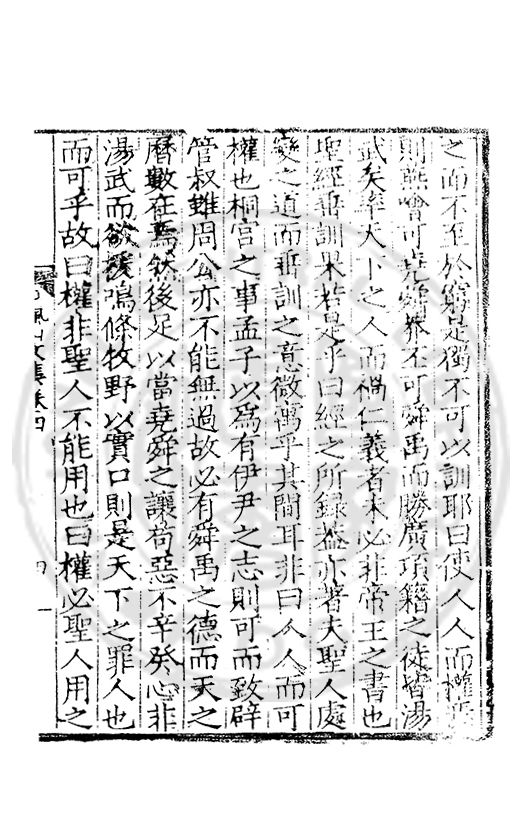 之而不至於窮是獨不可以訓耶曰使人人而權
則燕噲可堯舜莽丕可舜禹而勝廣項籍之徒皆湯
武矣率天下之人而禍仁義者未必非帝王之書也
聖經垂訓果若是乎曰經之所錄蓋亦著夫聖人處
變之道而垂訓之意微寓乎其間耳非曰人人而可
權也桐宮之事孟子以為有伊尹之志則可而致辟
管叔雖周公亦不能無過故必有舜禹之德而天之
曆數在焉然後足以當堯舜之讓苟惡不辛癸心非
湯武而欲援鳴條牧野以實口則是天下之罪人也
而可乎故曰權非聖人不能用也曰權必聖人用之
文集卷四
四